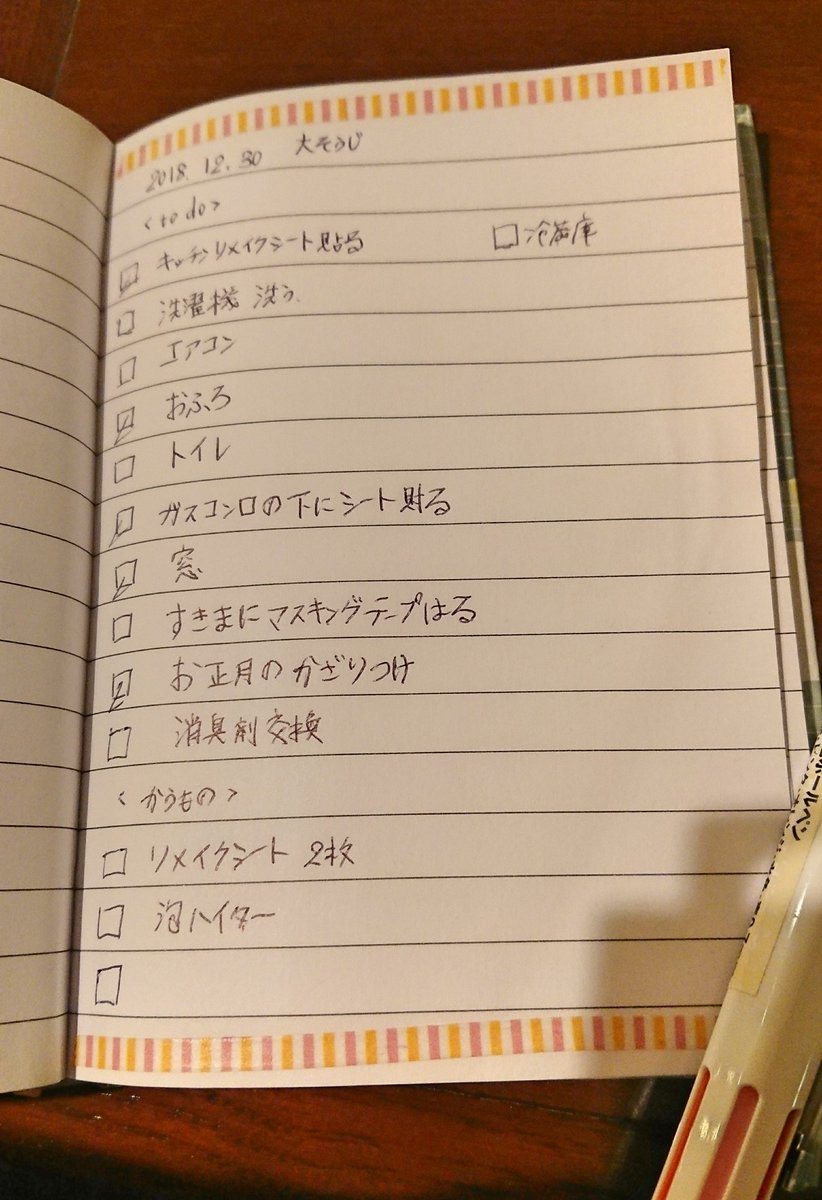 2018. 12. 30 大そうじ
<to do>
☑ キッチンリメイクシート貼る □ 冷蔵庫
□ 洗濯機 洗う
□ エアコン
☑ おふろ
□ トイレ
☑ ガスコンロの下にシート貼る
☑ 窓
□ すきまにマスキングテープはる
☑ お正月のかざりつけ
□ 消臭剤交換
<かうもの>
□ リメイクシート 2枚
□ 泡ハイター
□
ボールペン